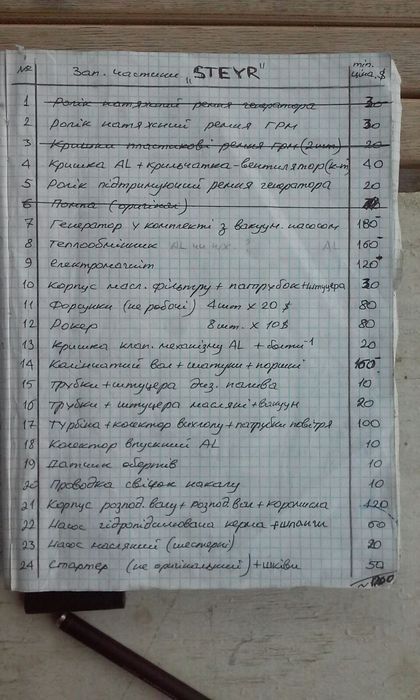 № Зап. частини „STEYR" min. ціна, $
1 Ролік натяжний ремня генератора 30
2 Ролік натяжний ремня ГРМ 30
3 Кришки пластикові ремня ГРМ (2шт) 20
4 Кришка AL + крильчатка-вентилятор (к-т) 40
5 Ролік підтримуючий ремня генератора 20
6 Помпа (оригінал)
7 Генератор у комплекті з вакуум. насосом 180
8 Теплообмінник AL чи н/ж ? AL 160
9 електромагніт 120
10 Корпус масл. фільтру + патрубок + штуцера 30
11 Форсунки (не робочі) 4шт x 20 $ 80
12 Рокер 8шт. x 10$ 80
13 Кришка клап. механізму AL + болти 20
14 Колінчатий вал + шатуни + поршні 160
15 трубки + штуцера диз. палива 10
16 трубки + штуцера масляні + вакуум 20
17 Турбіна + колектор вихлопу + патрубки повітря 100
18 Колектор впускний AL 10
19 Датчик обертів 10
20 Проводка свічок накалу 10
21 Корпус розпод. валу + розпод. вал + коромисла 120
22 Насос гідропідсилювача керма + шланги 60
23 Насос масляний (шестерні) 20
24 Стартер (не оригінальний) + шківи 50